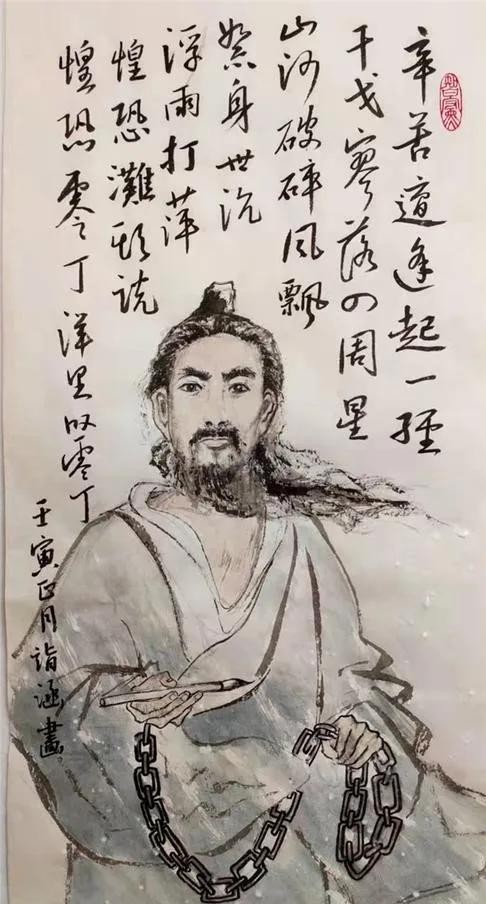 辛苦遭逢起一經
干戈寥落四周星
山河破碎风飘
絮身世沉
浮雨打萍
惶恐灘頭说
惶恐零丁洋里叹零丁
壬寅正月詣涵畫